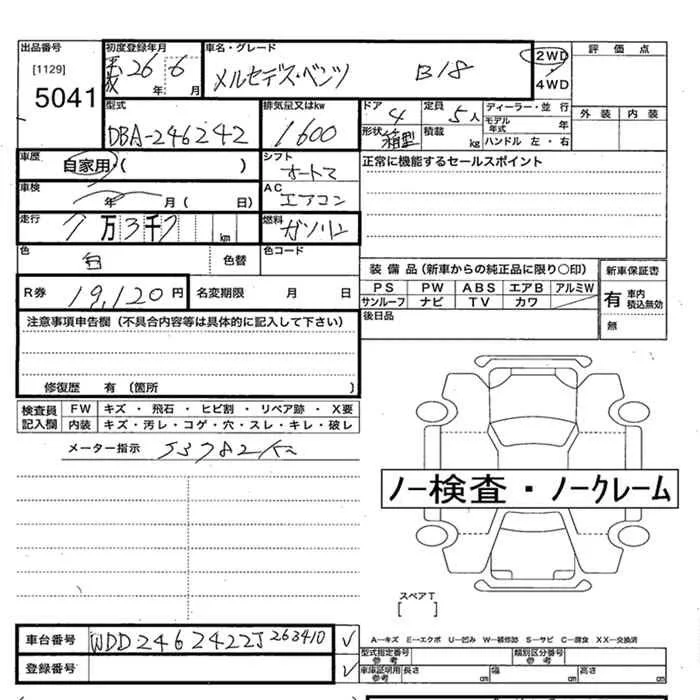 出品番号 初度登録年月 車名・グレード 2WD 評価点
[1129] 平成 26年 6月 メルセデス・ベンツ B18 4WD 外装 内装
5041
型式 排気量又はkw ドア 4 定員 5人 ディーラー・並行
DBA-246242 1600 形状 箱型 積載 kg モデル年式 年
ハンドル 左・右
車歴 自家用・( ) シフト オートマ 正常に機能するセールスポイント
車検 年 月( 日) AC エアコン
走行 7万3千7 km 燃料 ガソリン
色 白 色替 色コード
装備品(新車からの純正品に限り○印) 新車保証書
R券 19,120円 名変期限 月 日 PS PW ABS エアB アルミW 有 車内積込無効
サンルーフ ナビ TV カワ
注意事項申告欄(不具合内容等は具体的に記入して下さい) 後日品 無
修復歴 有(箇所 )
検査員記入欄 FW キズ・飛石・ヒビ割・リペア跡・X要
内装 キズ・汚レ・コゲ・穴・スレ・キレ・破レ
メーター指示 53782Km
ノー検査・ノークレーム
スペアT
[ ]
車台番号 WDD2462422J263410 ✓ A-キズ E-エクボ U-凹み W-補修跡 S-サビ C-腐食 XX-交換済
登録番号 ✓ 型式指定番号 参考 類別区分番号 参考
車庫証明用 参考 長さ cm 幅 cm 高さ cm